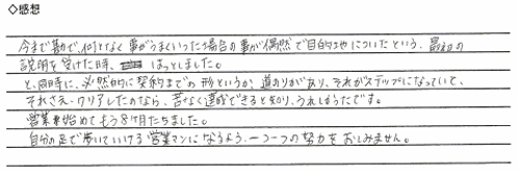 ◇感想
今まで勘で、何となく事がうまくいった場合の事が偶然で目的地についたという、最初の
説明を受けた時、はっとしました。
と、同時に、必然的に契約までの形というか、道のりがあり、それがステップになっていて、
それさえ、クリアしたのなら、苦なく達成できると知り、うれしかったです。
営業を始めてもう8ヶ月たちました。
自分の足で歩いていける営業マンになるよう、一つ一つの努力をおしみません。